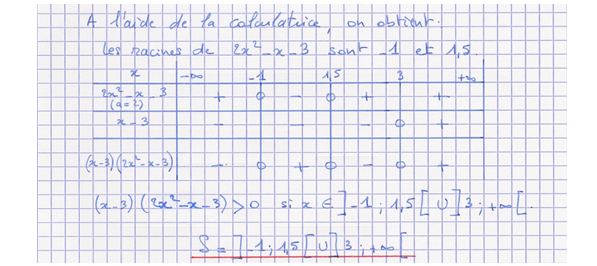 A l'aide de la calculatrice, on obtient.
Les racines de 2x²-x-3 sont -1 et 1,5.
x -∞ -1 1,5 3 +∞
2x²-x-3 + 0 - 0 + +
(a=2)
x-3 - - - 0 +
(x-3)(2x²-x-3) - 0 + 0 - 0 +
(x-3)(2x²-x-3)>0 si x ∈ ]-1; 1,5[ U ]3; +∞[.
S = ]-1; 1,5[ U ]3; +∞[